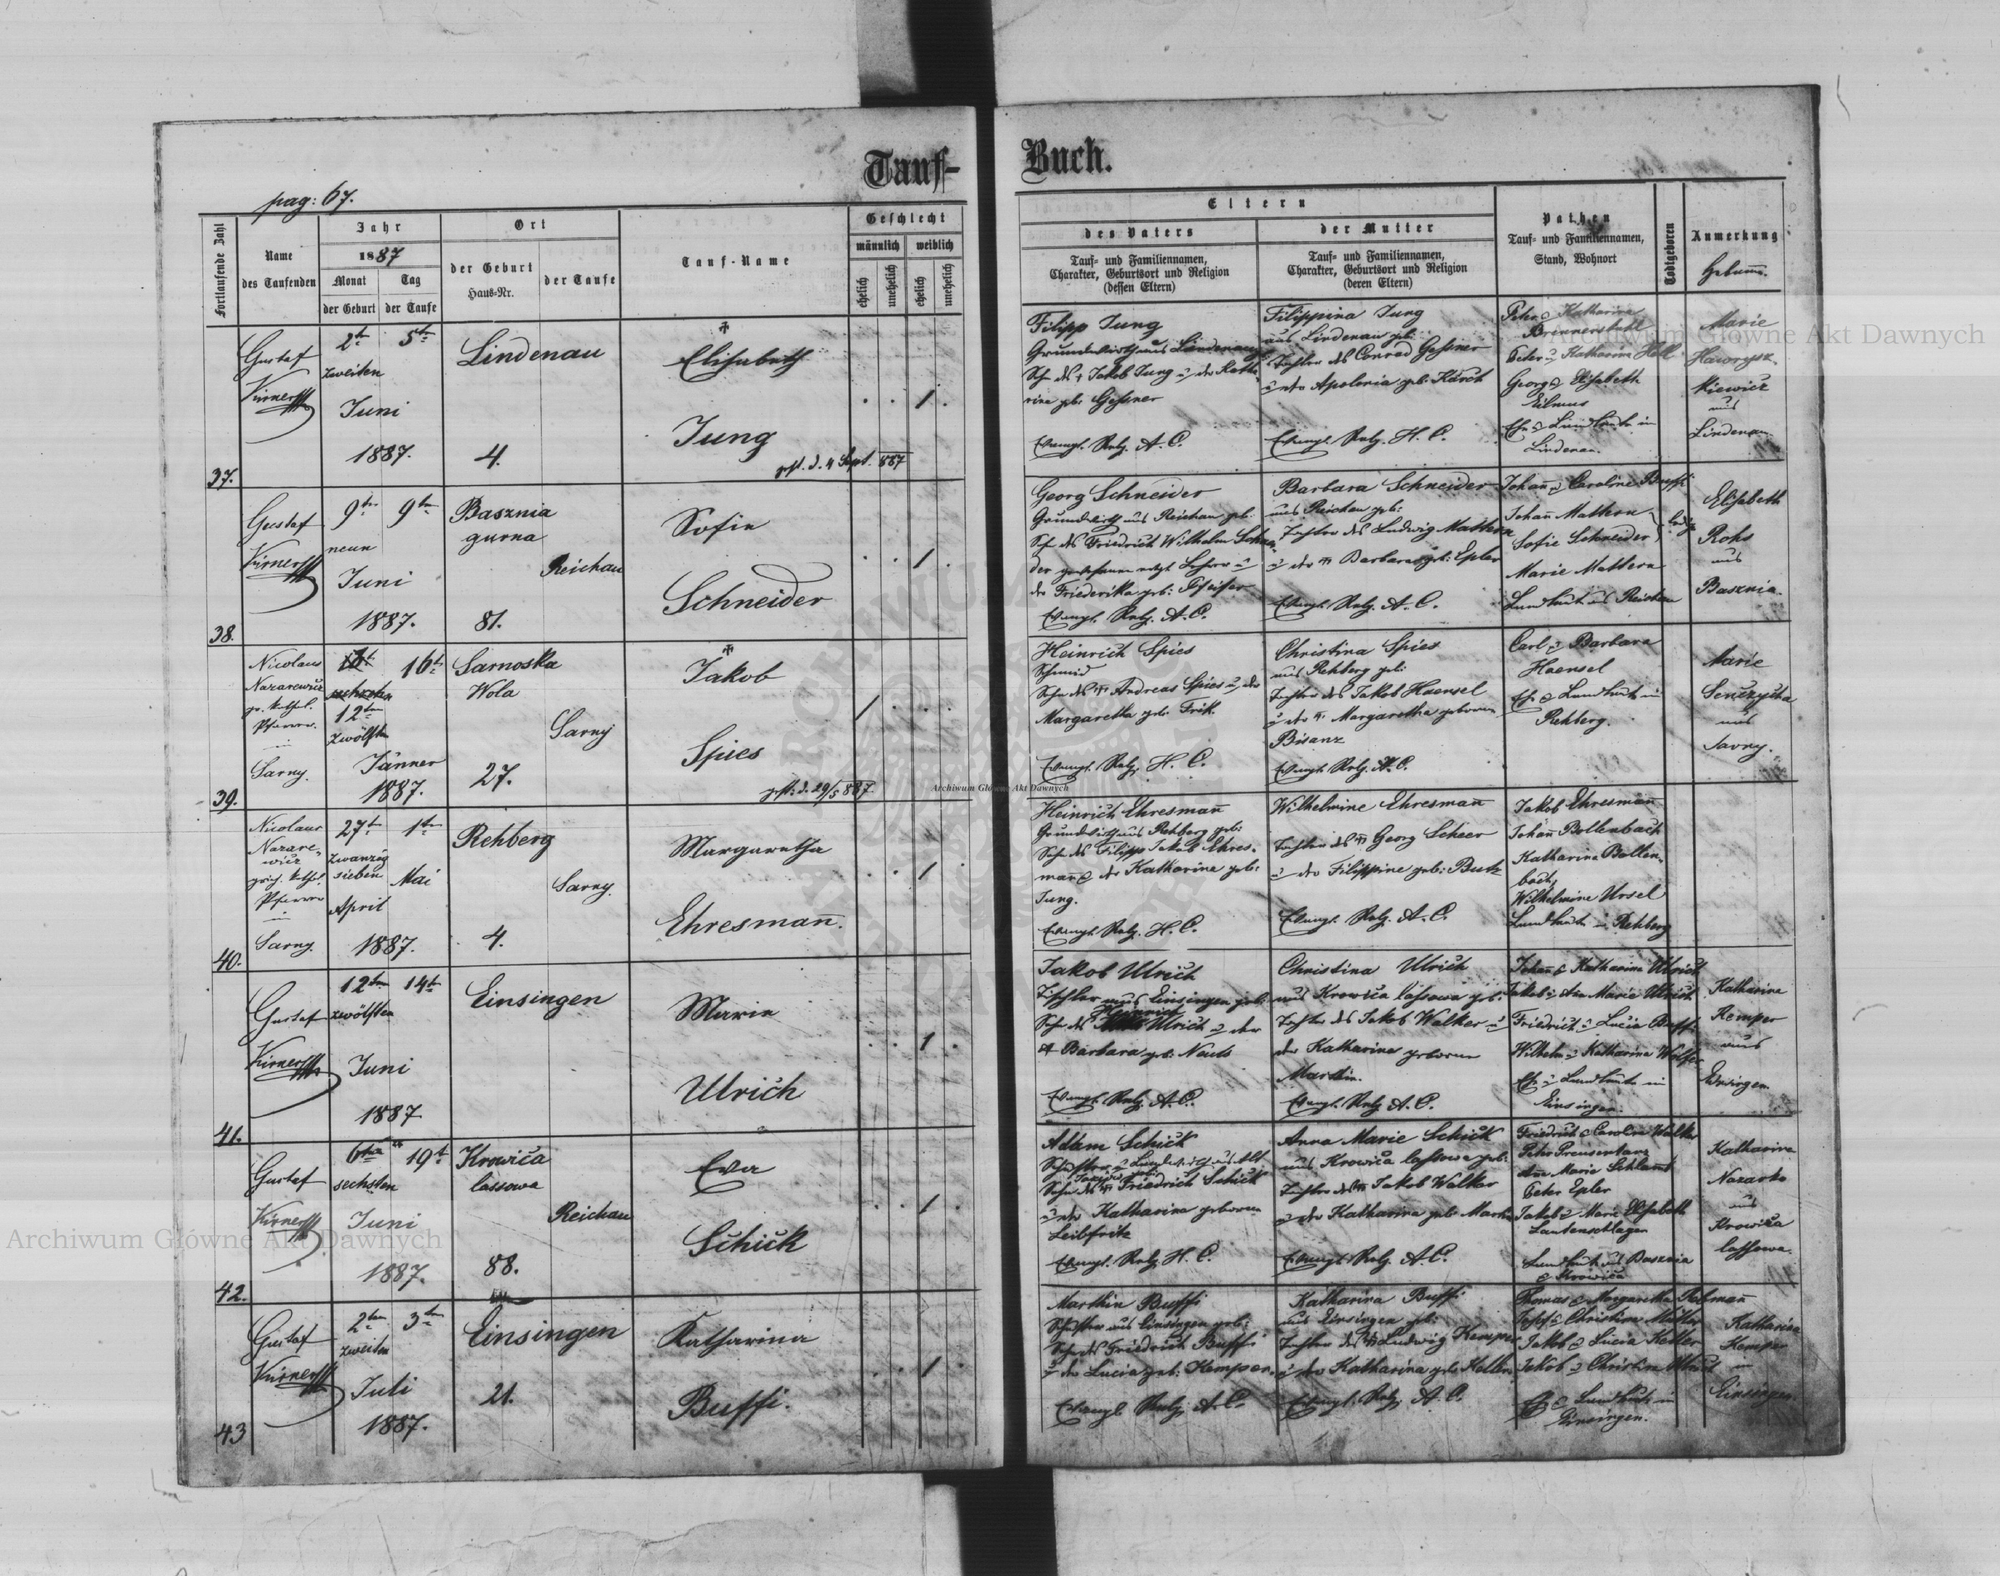 Tauf-
Buch.
pag: 67.
Fortlaufende Zahl
Name
des Taufenden
Jahr
1887
Monat
Tag
der Geburt
der Taufe
Ort
der Geburt
Haus-Nr.
der Taufe
Tauf-Name
Geschlecht
männlich
weiblich
ehelich
unehelich
ehelich
unehelich
Eltern
des Vaters
Tauf- und Familiennamen,
Charakter, Geburtsort und Religion
(dessen Eltern)
der Mutter
Tauf- und Familiennamen,
Charakter, Geburtsort und Religion
(deren Eltern)
Pathen
Tauf- und Familiennamen,
Stand, Wohnort
Todtgeboren
Anmerkung
37.
Gustaf
2t 5t
zweiten
Juni
1887.
Lindenau
4.
Elisabeth
Jung
gest. d. 4 Sept. 887
1
Filipp Jung
Grundwirth aus Lindenau
Sohn des Jakob Jung u. der Katha
rina geb. Gessner
Evangl. Relg. A. C.
Filippina Jung
aus Lindenau geb.
Tochter des Conrad Gessner
u. der Apolonia geb. Karch
Evangl. Relg. H. C.
Peter & Katharina
Peter u. Katharina Holl
Georg & Elisabeth
Lindenau.
Marie
Hawrysz
kiewicz
aus
Lindenau.
38.
Gustaf
9t 9t
neun
Juni
1887.
Basznia
gurna
81.
Reichau
Sofie
Schneider
1
Georg Schneider
Grundwirth aus Reichau geb.
Sohn des Friedrich Wilhelm Schnei
der
der Friederika geb: Pfeifer
Evangl. Relg. A. C.
Barbara Schneider
aus Reichau geb:
Tochter des Ludwig Mattern
u. der Barbara geb: Epler
Evangl. Relg. A. C.
Johann & Caroline Buffi
Johann Mattern
Sofie Schneider
Marie Mattern
Landleute aus Reichau
Elisabeth
Rohs
aus
Basznia.
39.
Nicolaus
Nazarewicz
gr. kathol.
Pfarrer
in
Sarny.
16t
12ten
zwölften
Jänner
1887.
Sarnoska
Wola
27.
Sarny
Jakob
Spies
gest. d. 29/5 887
1
Heinrich Spies
Schmid
Sohn des Andreas Spies u. der
Margaretha geb. Frik.
Evangl. Relg. H. C.
Christina Spies
aus Rehberg geb:
Tochter des Jakob Haensel
u. der Margaretha geborene
Bisanz
Evangl. Relg. A. C.
Carl & Barbara
Haensel
Landleute in
Rehberg.
Marie
aus
Sarny.
40.
Nicolaus
Nazare-
wicz
grich. kathol.
Pfarrer
in
Sarny.
27t 1t
zwanzig
sieben
April
Mai
1887.
Rehberg
4.
Sarny.
Margaretha
Ehresmann.
1
Heinrich Ehresmann
Grundwirth aus Rehberg geb:
Sohn des Filipp Jakob Ehres-
mann & der Katharine geb:
Jung.
Evangl. Relg. H. C.
Wilhelmine Ehresmann
Tochter des Georg Scheer
u. der Filippine geb: Butz
Evangl. Relg. A. C.
Jakob Ehresmann
Johann Bollenbach
Katharina Bollen-
bach,
Wilhelmine Ursel
Landleute in Rehberg
41.
Gustaf
12ten 14t
zwölften
Juni
1887
Einsingen
Marie
Ulrich
1
Jakob Ulrich
Tischler aus Einsingen geb:
Heinrich
Sohn des Ulrich u. der
Barbara geb: Neuts
Evangl. Relg. A. C.
Christina Ulrich
aus Krowica lassowa geb:
Tochter des Jakob Walker u.
der Katharina geborene
Marthin.
Evangl. Relg. A. C.
Johann & Katharina Ulrich
Jakob u. Anna Marie Ulrich
Friedrich u. Lucia Buffi
Landleute in
Einsingen.
Katharina
Kemper
aus
Einsingen.
42.
Gustaf
6ten 19t
sechsten
Juni
1887.
Krowica
lassowa
88.
Reichau
Eva
Schick
1
Adam Schick
Sohn des Friedrich Schick
u. der Katharina geborene
Leibfritz
Evangl. Relg. H. C.
Anna Marie Schick
aus Krowica lassowa geb:
Tochter des Jakob Walker
u. der Katharina geb Marthin
Evangl. Relg. A. C.
Friedrich & Caroline Walker
Anna Marie Schlamp
Peter Epler
Jakob u. Marie Elisabeth
Lautenschlager
Landleute aus Basznia
& Krowica
Katharina
Nazarko
aus
Krowica
lassowa.
43
Gustaf
2ten 3t
zweiten
Juli
1887.
Einsingen
21.
Katharina
Buffi.
1
Marthin Buffi
Schuster aus Einsingen geb:
Sohn des Friedrich Buffi
u. der Lucia geb: Kemper.
Evangl. Relg. A. C.
Katharina Buffi
aus Einsingen geb:
Tochter des Ludwig Kemper
u. der Katharina geb. Haller
Evangl. Relg. A. C.
Thomas & Margaretha
Josef & Christina Müller
Jakob & Lucia Haller
Jakob u. Christina Ulrich
Landleute in
Einsingen.
Katharina
Kemper
in
Einsingen.
Archiwum Główne Akt Dawnych
Archiwum Główne Akt Dawnych
Archiwum Główne Akt Dawnych